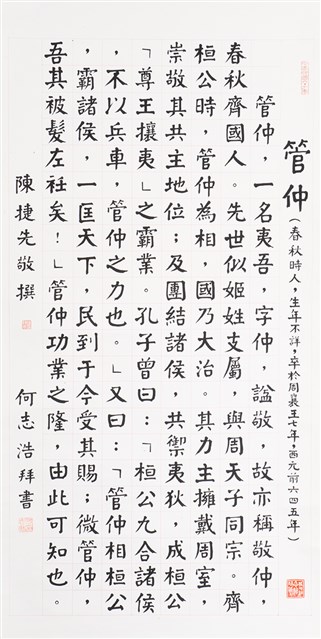 管仲(春秋時人,生年不詳,卒於周襄王七年,西元前六四五年)
管仲,一名夷吾,字仲,謚敬,故亦稱敬仲,
春秋齊國人。先世似姬姓支屬,與周天子同宗。齊
桓公時,管仲為相,國乃大治。其力主擁戴周室,
崇敬其共主地位;及團結諸侯,共禦夷狄,成桓公
「尊王攘夷」之霸業。孔子曾曰:「桓公九合諸侯
,不以兵車,管仲之力也。」又曰:「管仲相桓公
,霸諸侯,一匡天下,民到于今受其賜;微管仲,
吾其被髮左衽矣!」管仲功業之隆,由此可知也。
陳捷先敬撰 何志浩拜書